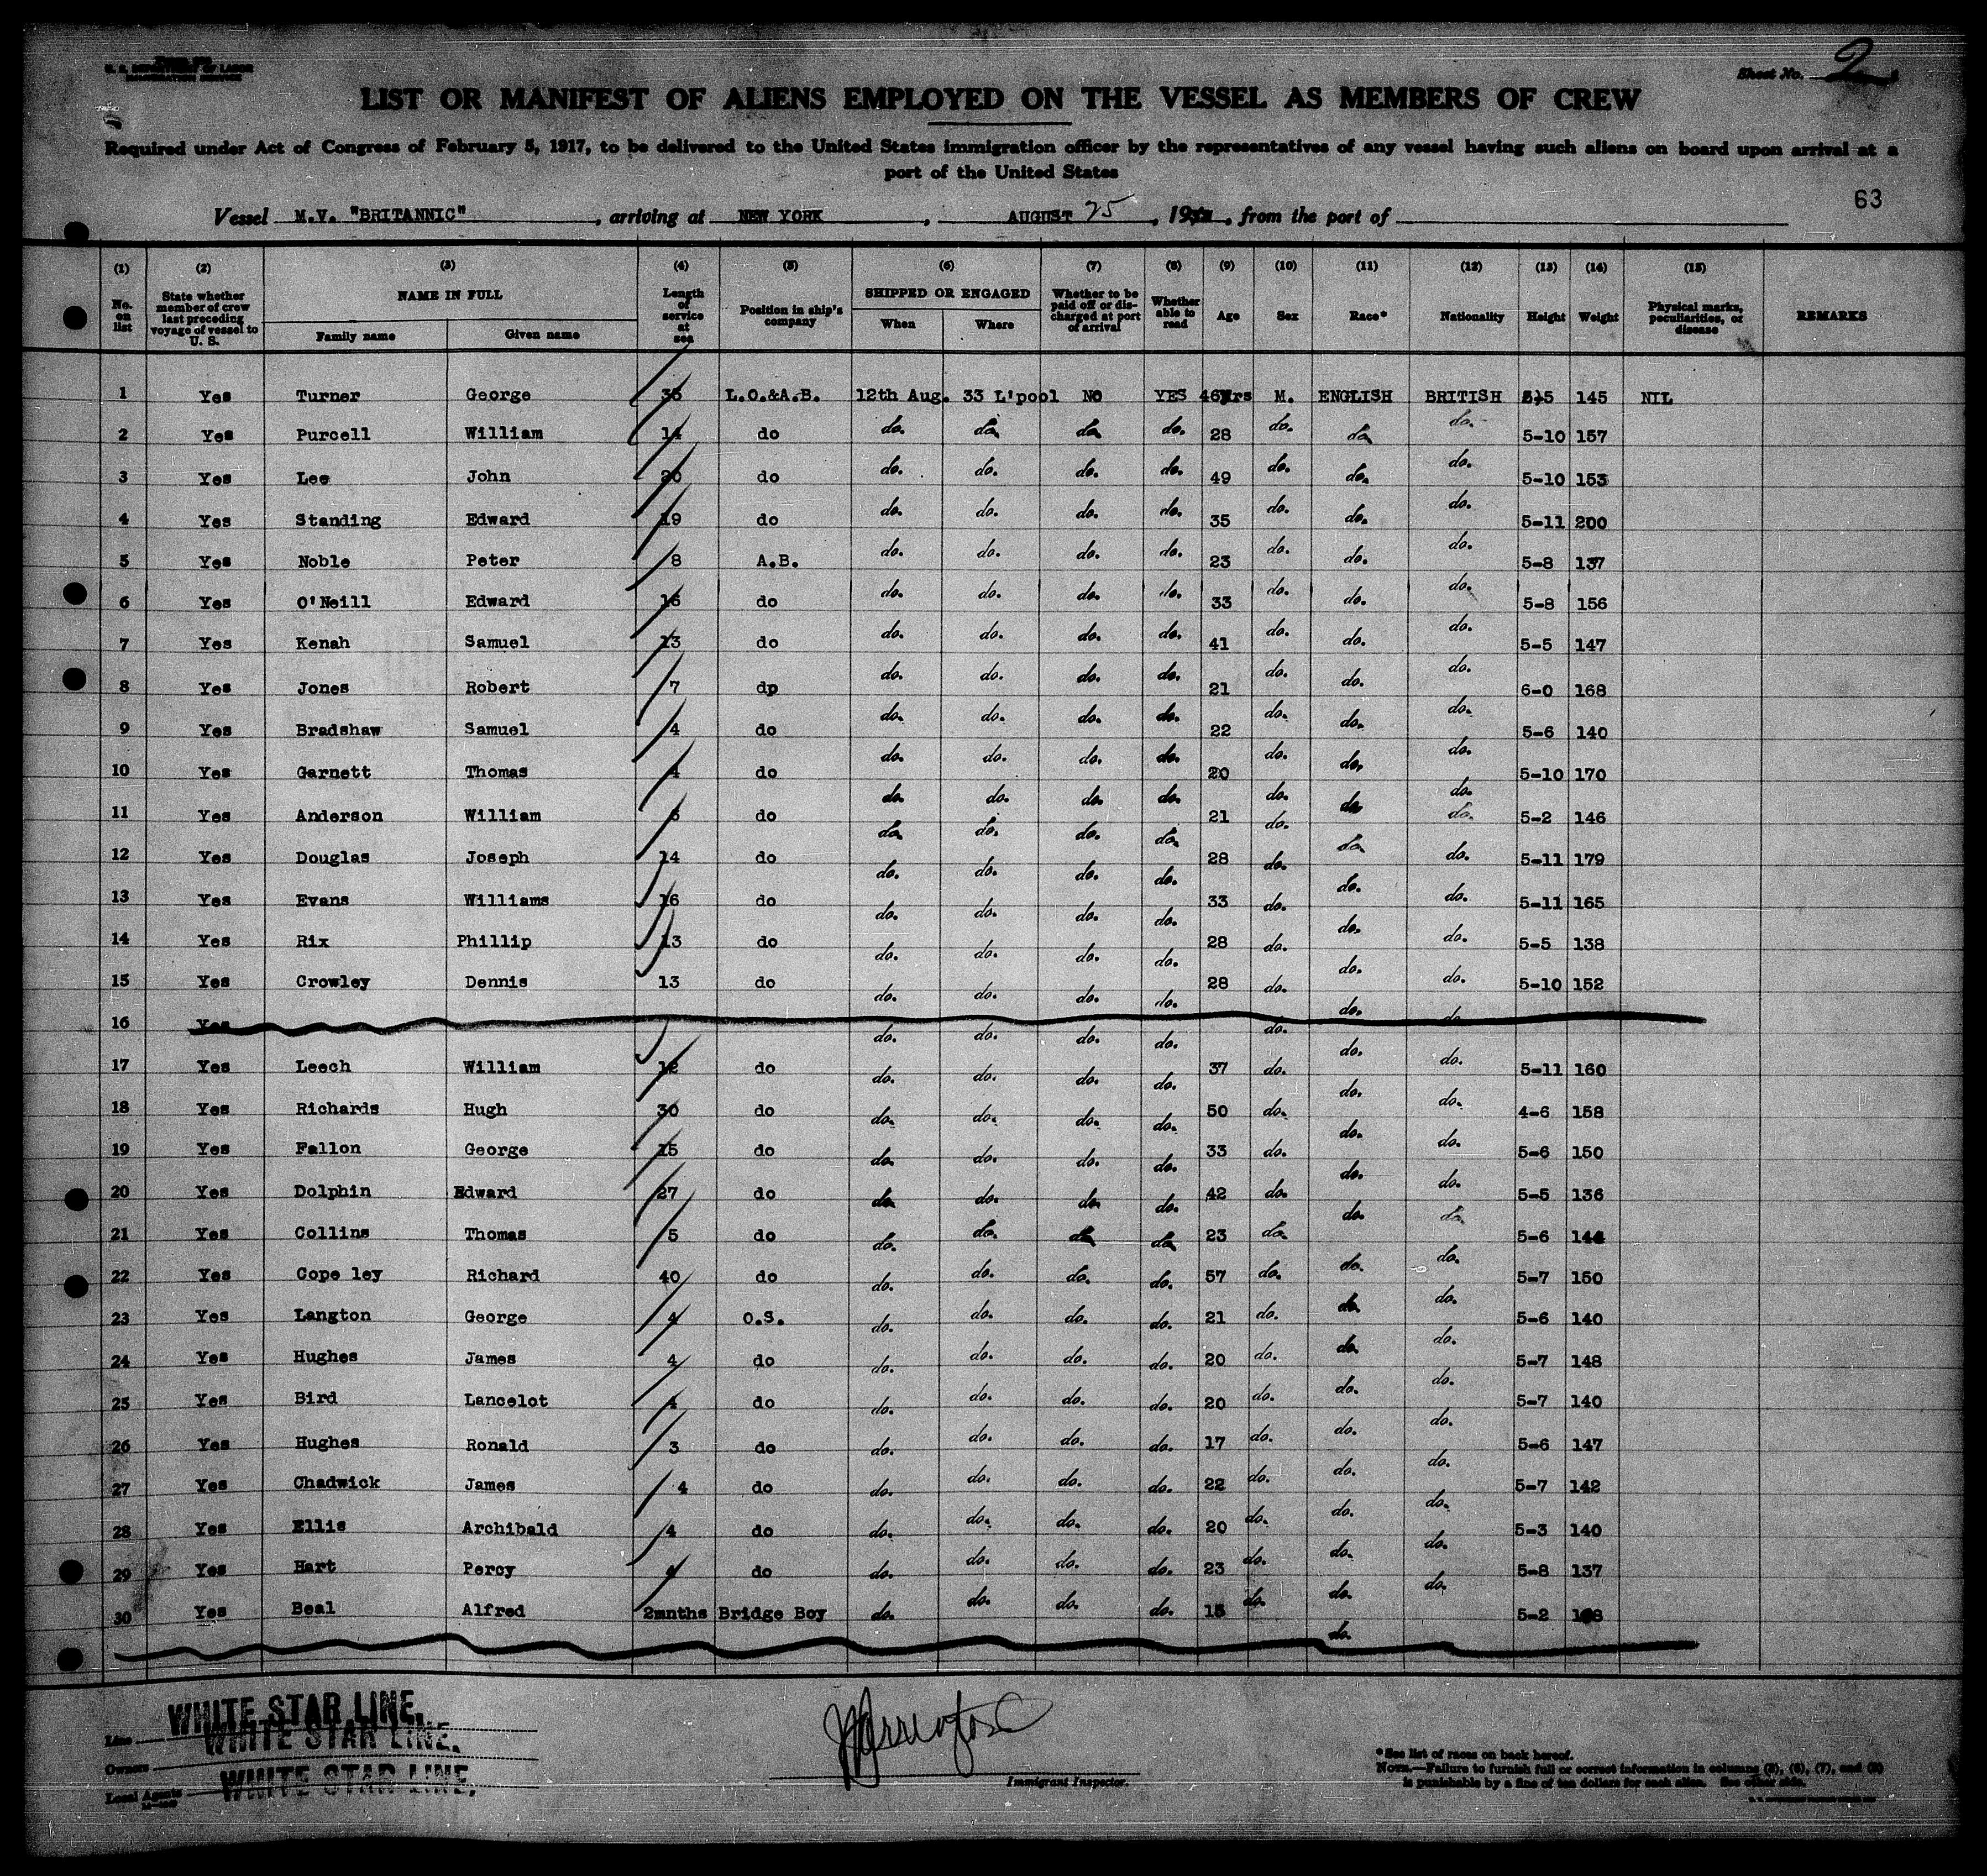 U. S. DEPARTMENT OF LABOR
IMMIGRATION SERVICE
Sheet No. 2
LIST OR MANIFEST OF ALIENS EMPLOYED ON THE VESSEL AS MEMBERS OF CREW
Required under Act of Congress of February 5, 1917, to be delivered to the United States immigration officer by the representatives of any vessel having such aliens on board upon arrival at a
port of the United States
63
Vessel M.V. "BRITANNIC", arriving at NEW YORK, AUGUST 25, 19, from the port of
(1) (2) (3) (4) (5) (6) (7) (8) (9) (10) (11) (12) (13) (14) (15)
No. on list State whether member of crew last preceding voyage of vessel to U. S. NAME IN FULL Family name Given name Length of service at sea Position in ship's company SHIPPED OR ENGAGED When Where Whether to be paid off or discharged at port of arrival Whether able to read Age Sex Race* Nationality Height Weight Physical marks, peculiarities, or disease REMARKS
1 Yes Turner George 35 L.O.&A.B. 12th Aug. 33 L'pool NO YES 46Yrs M. ENGLISH BRITISH 5)5 145 NIL
2 Yes Purcell William 14 do do. do. do. do. 28 do. do. do. 5-10 157
3 Yes Lee John 20 do do. do. do. do. 49 do. do. do. 5-10 153
4 Yes Standing Edward 19 do do. do. do. do. 35 do. do. do. 5-11 200
5 Yes Noble Peter 8 A.B. do. do. do. do. 23 do. do. do. 5-8 137
6 Yes O'Neill Edward 16 do do. do. do. do. 33 do. do. do. 5-8 156
7 Yes Kenah Samuel 13 do do. do. do. do. 41 do. do. do. 5-5 147
8 Yes Jones Robert 7 dp do. do. do. do. 21 do. do. do. 6-0 168
9 Yes Bradshaw Samuel 4 do do. do. do. do. 22 do. do. do. 5-6 140
10 Yes Garnett Thomas 4 do do. do. do. do. 20 do. do. do. 5-10 170
11 Yes Anderson William 6 do do. do. do. do. 21 do. do. do. 5-2 146
12 Yes Douglas Joseph 14 do do. do. do. do. 28 do. do. do. 5-11 179
13 Yes Evans Williams 16 do do. do. do. do. 33 do. do. do. 5-11 165
14 Yes Rix Phillip 13 do do. do. do. do. 28 do. do. do. 5-5 138
15 Yes Crowley Dennis 13 do do. do. do. do. 28 do. do. do. 5-10 152
16 Yes do. do. do. do. do. do. do.
17 Yes Leech William 12 do do. do. do. do. 37 do. do. do. 5-11 160
18 Yes Richards Hugh 30 do do. do. do. do. 50 do. do. do. 4-6 158
19 Yes Fallon George 15 do do. do. do. do. 33 do. do. do. 5-6 150
20 Yes Dolphin Edward 27 do do. do. do. do. 42 do. do. do. 5-5 136
21 Yes Collins Thomas 5 do do. do. do. do. 23 do. do. do. 5-6 144
22 Yes Cope ley Richard 40 do do. do. do. do. 57 do. do. do. 5-7 150
23 Yes Langton George 4 O.S. do. do. do. do. 21 do. do. do. 5-6 140
24 Yes Hughes James 4 do do. do. do. do. 20 do. do. do. 5-7 148
25 Yes Bird Lancelot 4 do do. do. do. do. 20 do. do. do. 5-7 140
26 Yes Hughes Ronald 3 do do. do. do. do. 17 do. do. do. 5-6 147
27 Yes Chadwick James 4 do do. do. do. do. 22 do. do. do. 5-7 142
28 Yes Ellis Archibald 4 do do. do. do. do. 20 do. do. do. 5-3 140
29 Yes Hart Percy 4 do do. do. do. do. 23 do. do. do. 5-8 137
30 Yes Beal Alfred 2mnths Bridge Boy do. do. do. do. 15 do. do. do. 5-2
do.
Line WHITE STAR LINE.
Owners WHITE STAR LINE.
Local Agents WHITE STAR LINE.
Immigrant Inspector.
*See list of races on back hereof.
NOTE.—Failure to furnish full or correct information in columns (2), (6), (7), and (8)
is punishable by a fine of ten dollars for each alien. See other side.